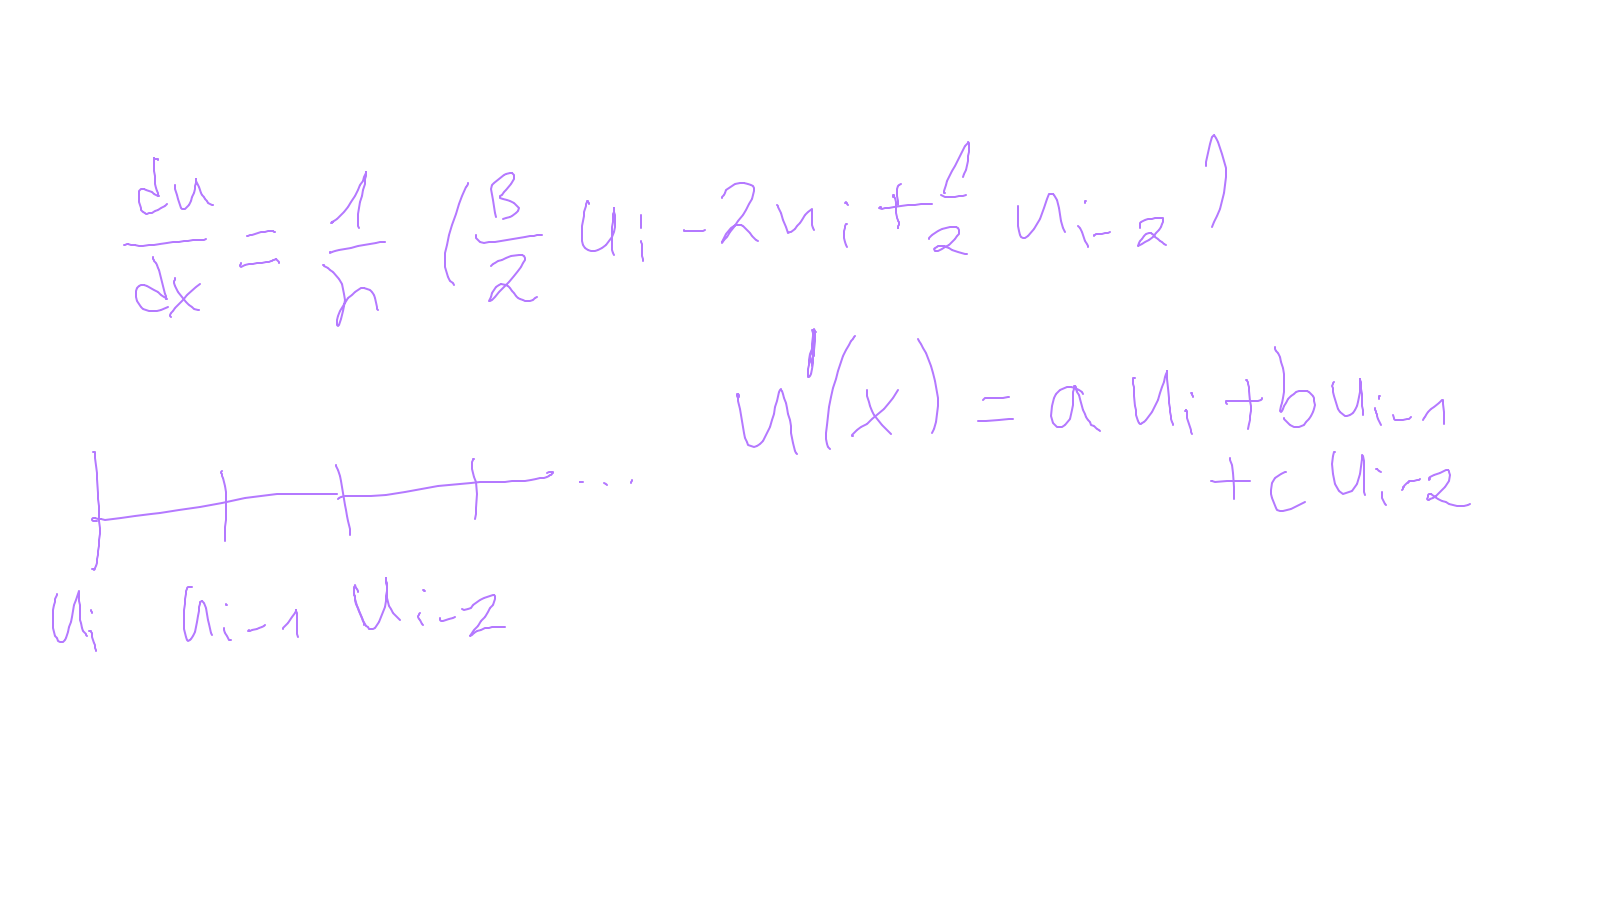 du/dx = 1/h (3/2 u_i - 2u_i + 1/2 u_{i-2})
u'(x) = a u_i + b u_{i-1}
+ c u_{i-2}
...
u_i u_{i-1} u_{i-2}